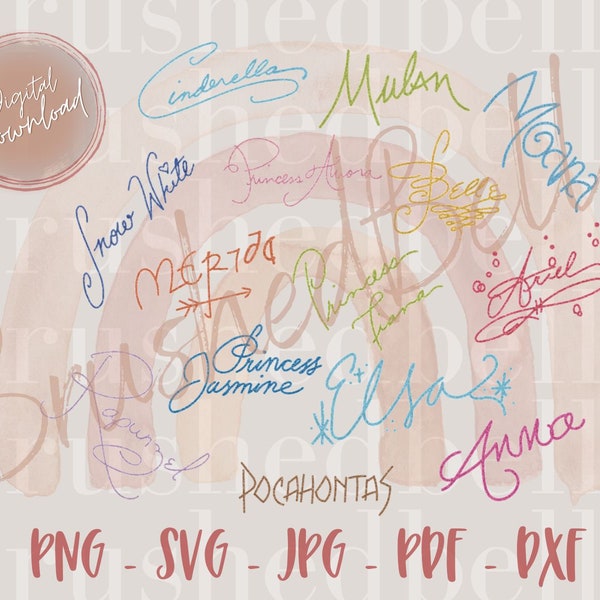 rushedbell
Digital
Download
Cinderella
Mulan
Moana
Snow White
Princess Aurora
Belle
MERIDA
Princess
Tiana
Ariel
Rapunzel
Princess
Jasmine
Elsa
Anna
POCAHONTAS
BrushedBell
rushedbell
rushedbell
PNG - SVG - JPG - PDF - DXF